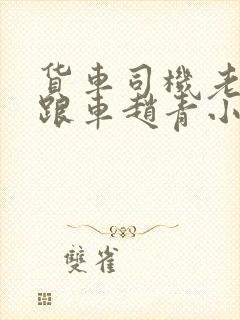 货车司機老
跟車趙青小
雙雀